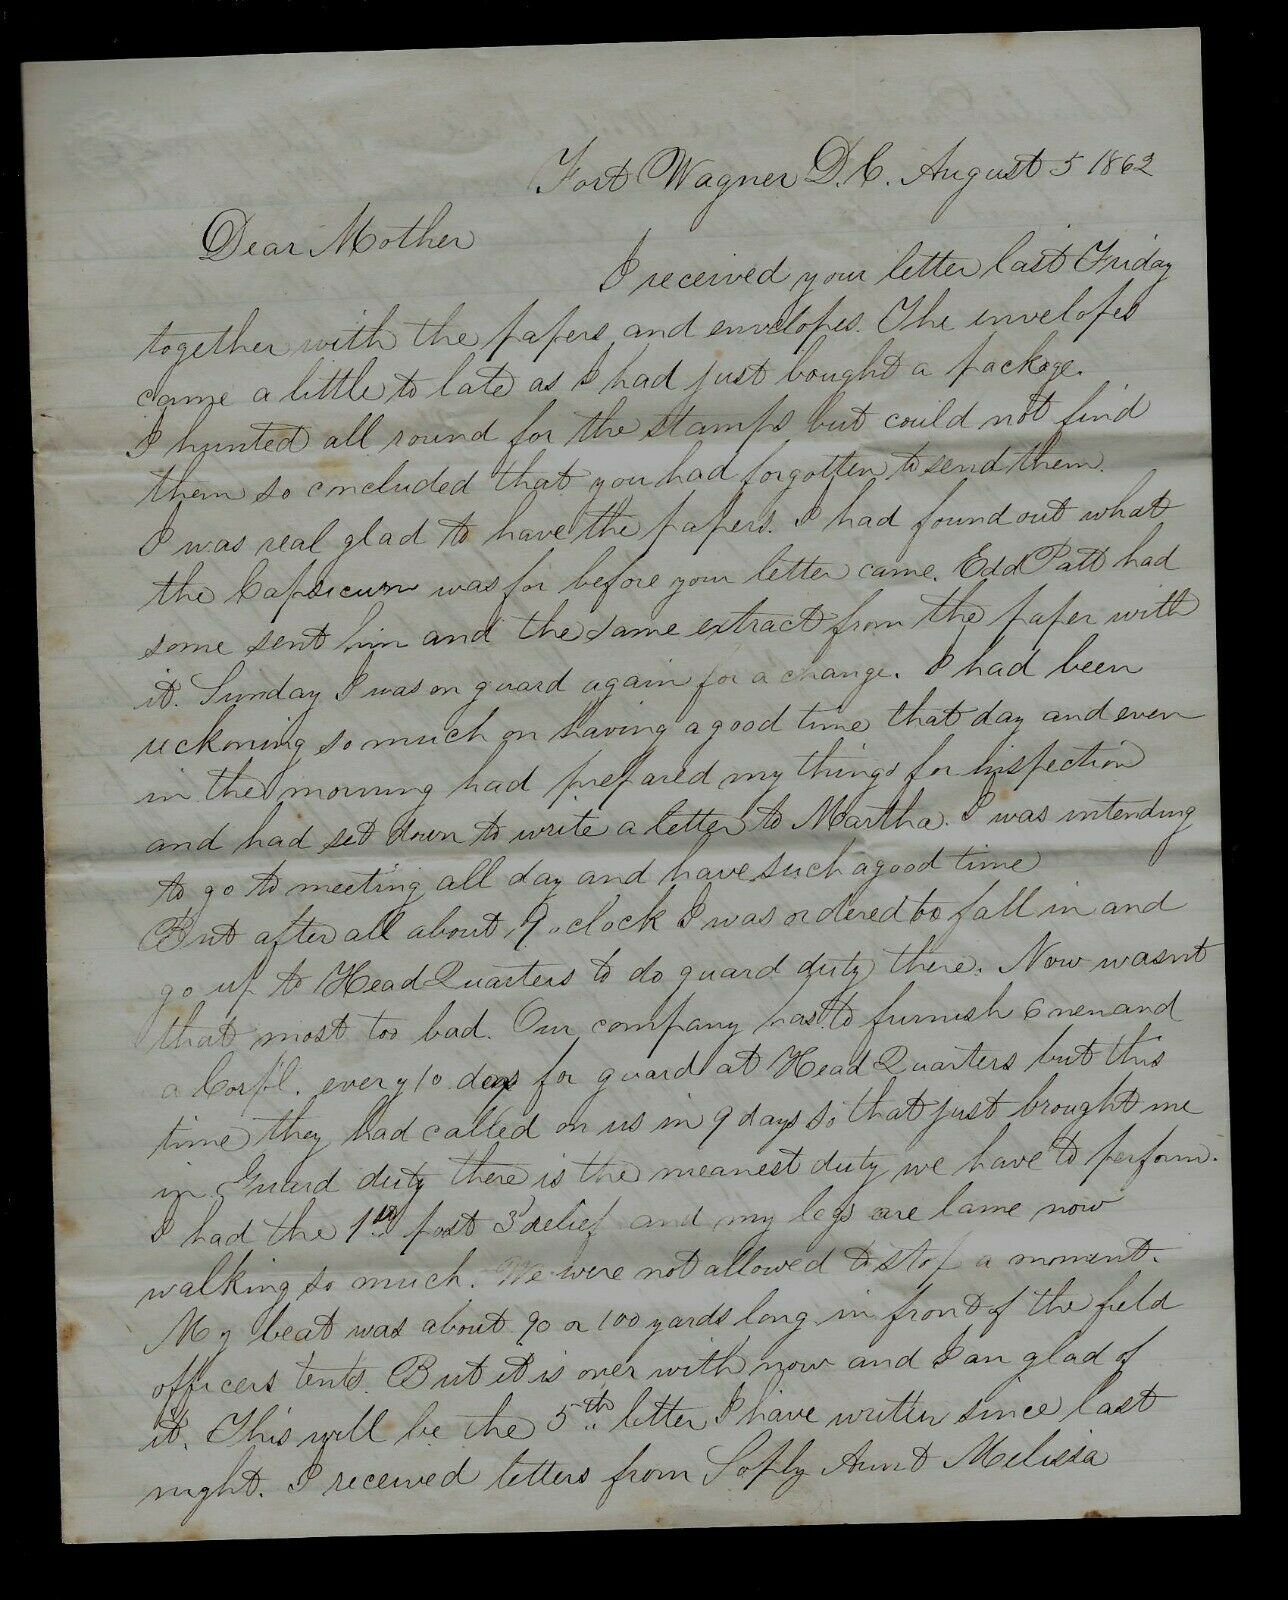 Fort Wagner D.C. August 5 1862
Dear Mother
I received your letter last Friday
together with the papers and envelopes. The invelopes
came a little to late as I had just bought a package.
I hunted all round for the stamps but could not find
them so concluded that you had forgotten to send them.
I was real glad to have the papers. I had found out what
the Capsicum was for before your letter came. Edd Patt had
some sent him and the same extract from the paper with
it. Sunday I was on guard again for a change. I had been
reckoning so much on having a good time that day and even
in the morning had prepared my things for inspection
and had set down to write a letter to Martha. I was intending
to go to meeting all day and have such a good time
But after all about 9 oclock I was ordered to fall in and
go up to Head Quarters to do guard duty there. Now wasnt
that most too bad. Our company has to furnish 6 men and
a Corpl. every 10 days for guard at Head Quarters but this
time they had called on us in 9 days so that just brought me
in. Guard duty there is the meanest duty we have to perform.
I had the 1st post 3d relief and my legs are lame now
walking so much. We were not allowed to stop a moment.
My beat was about 90 or 100 yards long in front of the field
officers tents. But it is over with now and I am glad of
it. This will be the 5th letter I have written since last
night. I received letters from Sophy Aunt Melissa